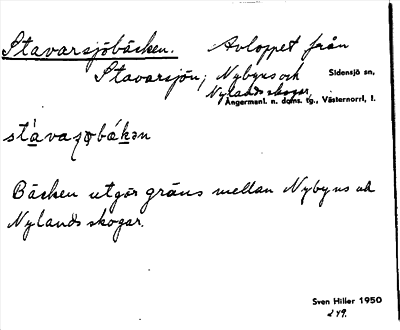 Stavarsjöbäcken. Avloppet från
Stavarsjön; Nybyns och Sidensjö sn,
Nylands skogar.
Ångermanl. n. doms. tg., Västernorrl. l.
Bäcken utgör gräns mellan Nybyns och
Nylands skogar.
Sven Hiller 1950
249.